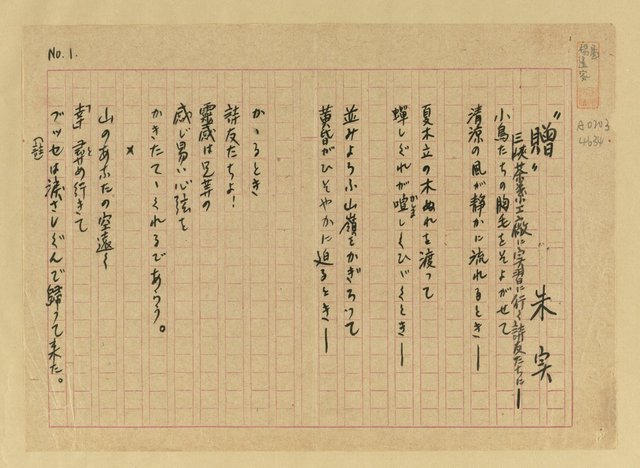 No. 1.
"贈" 朱実
三峡茶業工廠に実習に行く詩友たちに―
小鳥たちの胸毛をそよがせて
清涼の風が静かに流れるとき―
夏木立の木ぬれを渡って
蟬しぐれが喧しくひゞくとき―
かま
並みよろふ山嶺をかぎろいて
黄昏がひそやかに迫るとき―
かゝるとき
詩友たちよ!
霊感は見葬の
感じ易い心弦を
かきたてゝくれるであらう。
×
山のあなたの空遠く
「幸」尋め行きて
と
ブッセは涙さしぐんで帰って来た。
(註)
A0703
4634